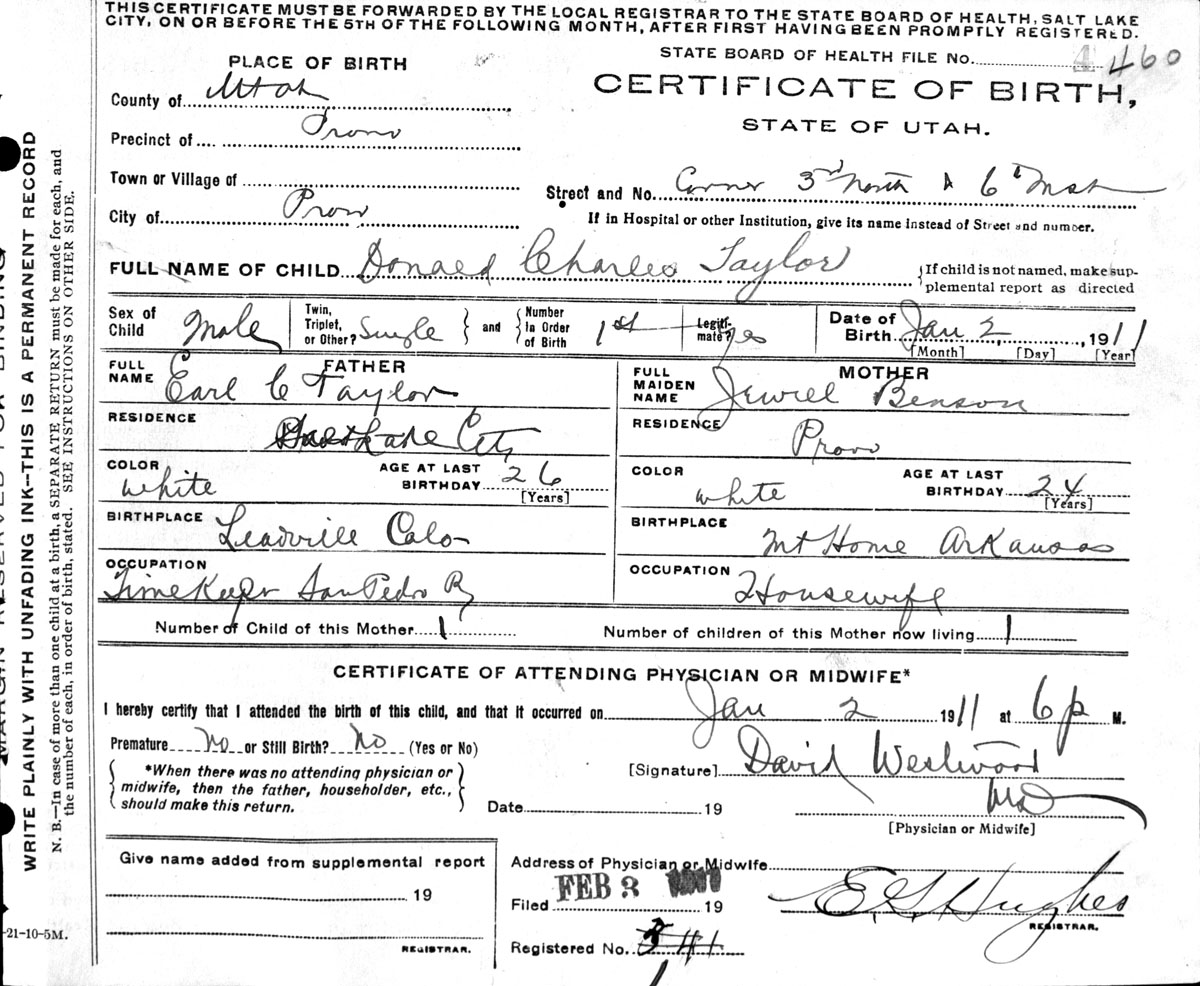 THIS CERTIFICATE MUST BE FORWARDED BY THE LOCAL REGISTRAR TO THE STATE BOARD OF HEALTH, SALT LAKE
CITY, ON OR BEFORE THE 5TH OF THE FOLLOWING MONTH, AFTER FIRST HAVING BEEN PROMPTLY REGISTERED.
STATE BOARD OF HEALTH FILE NO. 4 460
PLACE OF BIRTH
CERTIFICATE OF BIRTH,
STATE OF UTAH.
County of Utah
Precinct of Provo
Town or Village of
Street and No. Corner 3rd North & 6th
City of Provo
If in Hospital or other Institution, give its name instead of Street and number.
FULL NAME OF CHILD Donald Charles Taylor
{If child is not named, make sup-
plemental report as directed
Sex of Child Male
Twin, Triplet, or Other? Single
and
Number In Order of Birth 1st
Legiti-mate? yes
Date of Birth Jan 2, 1911
[Month] [Day] [Year]
FATHER
FULL NAME Earl C Taylor
MOTHER
FULL MAIDEN NAME Jewell Benson
RESIDENCE Salt Lake City
RESIDENCE Provo
COLOR white
AGE AT LAST BIRTHDAY 26
[Years]
COLOR white
AGE AT LAST BIRTHDAY 24
[Years]
BIRTHPLACE Leadville Colo
BIRTHPLACE Mt Home Arkansas
OCCUPATION Time Keeper San Pedro Ry
OCCUPATION Housewife
Number of Child of this Mother 1
Number of children of this Mother now living 1
CERTIFICATE OF ATTENDING PHYSICIAN OR MIDWIFE*
I hereby certify that I attended the birth of this child, and that it occurred on Jan 2 1911 at 6 p M.
Premature No or Still Birth? No (Yes or No)
*When there was no attending physician or
midwife, then the father, householder, etc.,
should make this return.
[Signature] David Westwood
MD
Date 19
[Physician or Midwife]
Give name added from supplemental report
19
REGISTRAR.
Address of Physician or Midwife
Filed FEB 3 19
E. G. Hughes
REGISTRAR.
Registered No. 341
-21-10-5M.
MARGIN RESERVED FOR BINDING
WRITE PLAINLY WITH UNFADING INK--THIS IS A PERMANENT RECORD
N. B.—In case of more than one child at a birth, a SEPARATE RETURN must be made for each, and
the number of each, in order of birth, stated. SEE INSTRUCTIONS ON OTHER SIDE.